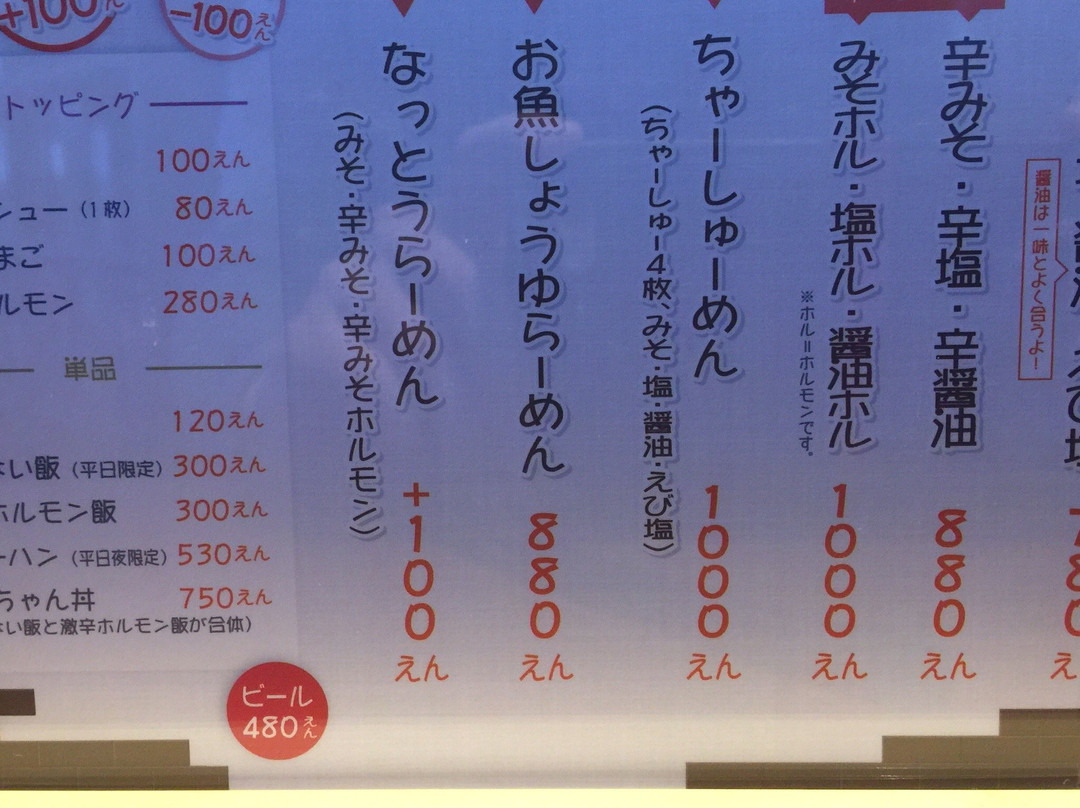 辛みそ・辛塩・辛醤油
880えん
みそホル・塩ホル・醤油ホル
※ホル=ホルモンです。
1000えん
ちゃーしゅーめん
(ちゃーしゅー4枚、みそ・塩・醤油・えび塩)
1000えん
お魚しょうゆらーめん
880えん
なっとうらーめん
(みそ・辛みそ・辛みそホルモン)
+100えん
醤油は一味とよく合うよ!
+100えん
-100えん
トッピング
100えん
シュー(1枚) 80えん
まご 100えん
ルモン 280えん
単品
120えん
い飯(平日限定) 300えん
ホルモン飯 300えん
ーハン(平日夜限定) 530えん
ちゃん丼 750えん
い飯と激辛ホルモン飯が合体)
ビール
480えん